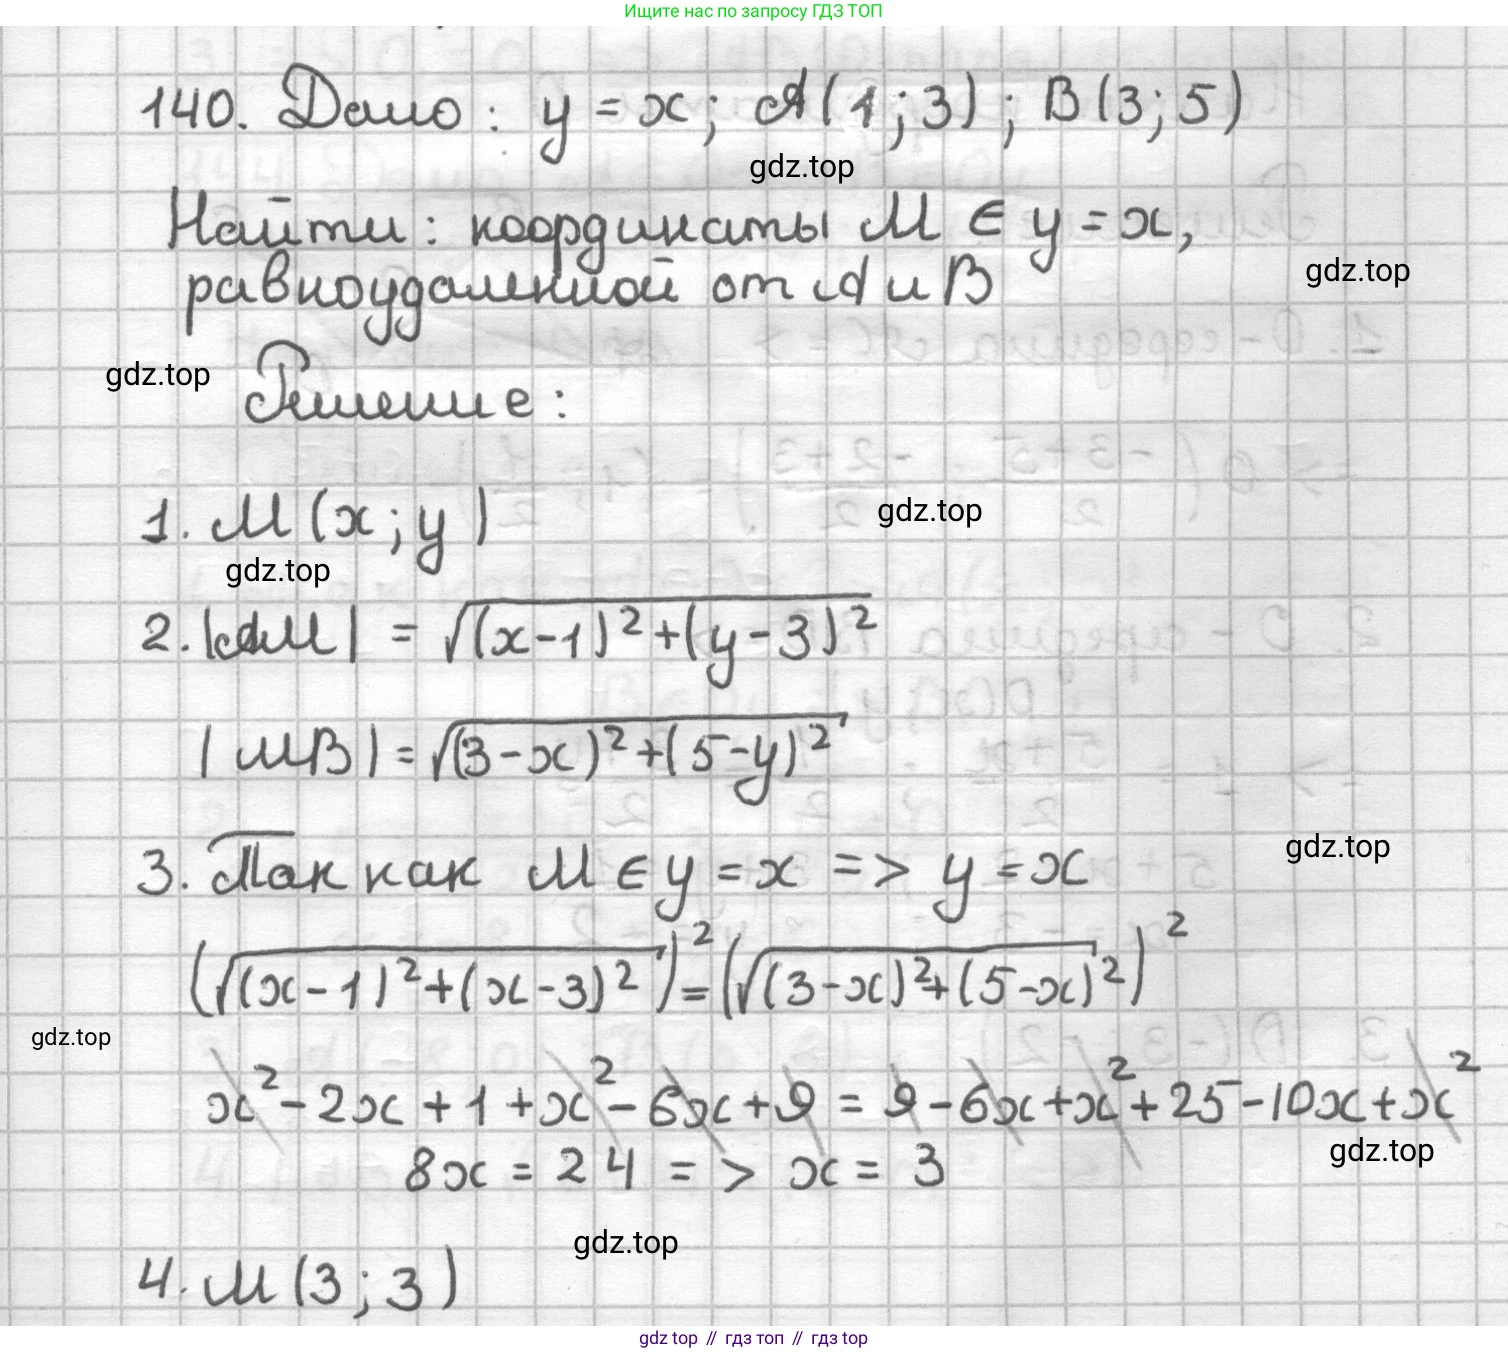 Ищите нас по запросу ГДЗ ТОП
140. Дано: y = x; A(1;3); B(3;5)
gdz.top
Найти: координаты M ∈ y = x,
равноудаленной от A и B
gdz.top
gdz.top
Решение:
1. M(x;y)
gdz.top
gdz.top
2. |AM| = √((x-1)²+(y-3)²)
|MB| = √((3-x)²+(5-y)²)
gdz.top
3. Так как M ∈ y = x => y = x
(√((x-1)²+(x-3)²))² = (√((3-x)²+(5-x)²))²
gdz.top
x² - 2x + 1 + x² - 6x + 9 = 9 - 6x + x² + 25 - 10x + x²
gdz.top
8x = 24 => x = 3
gdz.top
4. M(3;3)
gdz top // гдз топ // гдз top